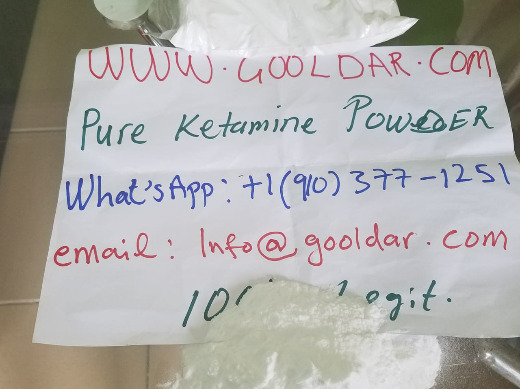 WWW.GOOLDAR.COM
Pure Ketamine POWDER
What'sApp: +1(910)377-1251
email: Info@gooldar.com
Legit.